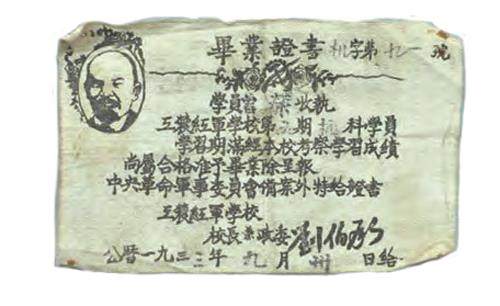 畢業證書 字第 號
學員曾 深收執
工農紅軍學校第 期 科學員
學習期滿經本校考察學習成績
尚屬合格准予畢業除呈報
中央革命軍事委員會備案外特給證書
工農紅軍學校
校長兼政委劉伯承
公曆一九三二年九月卅日給